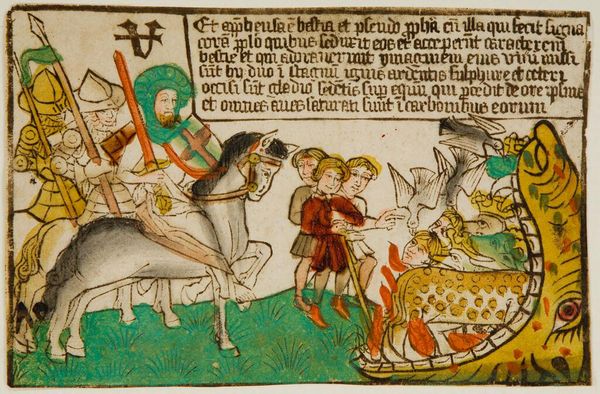 Et app̄hensa ē bestia et pseudo ꝓpha cū illa qui fecit signa
corā ip̄o quibus seduxit eos et acceperunt caracterem
bestie et qui adorauerunt ymaginem eius viui missi
sūt hy duo ī stagnū ignis ardentis sulphure et ceteri
occisi sūt gladio sedētis sup equū qui pcedit de ore ipsius
et omnes aues saturati sunt ī carbonibus eorum